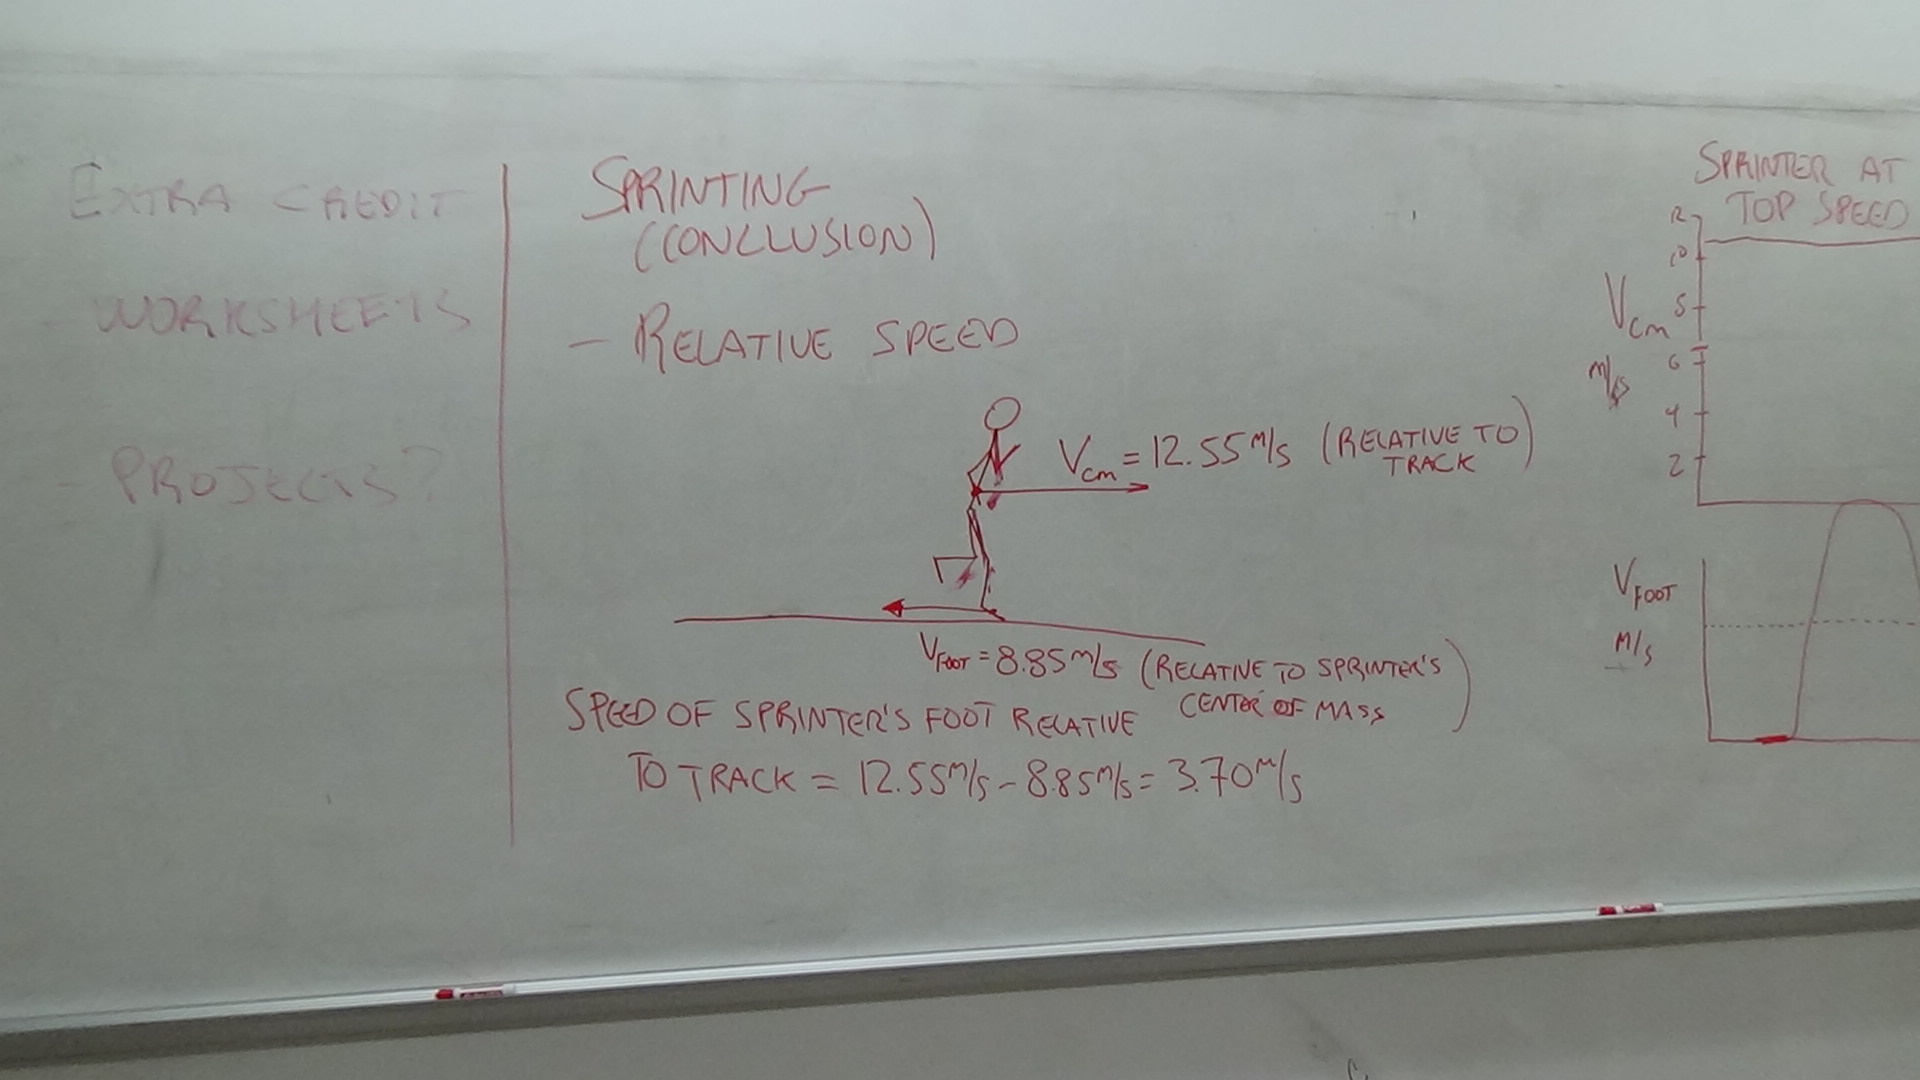 EXTRA CREDIT
- WORKSHEETS
- PROJECTS?
SPRINTING
(CONCLUSION)
- RELATIVE SPEED
Vcm = 12.55 m/s (RELATIVE TO
TRACK)
VFOOT = 8.85 m/s (RELATIVE TO SPRINTER'S
CENTER OF MASS)
SPEED OF SPRINTER'S FOOT RELATIVE
TO TRACK = 12.55 m/s - 8.85 m/s = 3.70 m/s
SPRINTER AT
TOP SPEED
12
10
8
6
4
2
Vcm
m/s
VFOOT
M/s